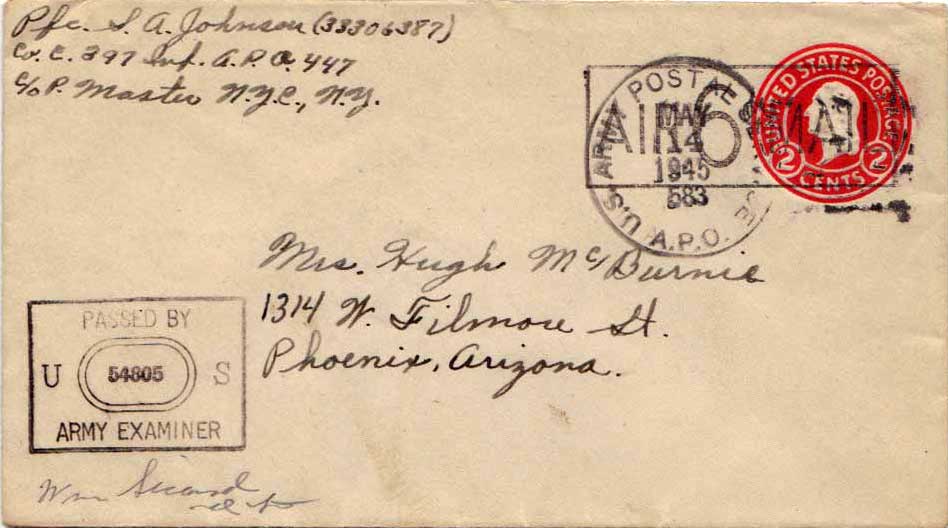 Pfc. S. A. Johnson (33306387)
Co. C. 397 Inf. A.P.O. 447
c/o P. Master N.Y.C., N.Y.
U.S. ARMY POSTAL SERVICE
A.P.O.
MAY
14
1945
583
AIR 6¢ MAIL
UNITED STATES POSTAGE
2 CENTS 2
Mrs. Hugh McBurnie
1314 W. Filmore St.
Phoenix, Arizona.
PASSED BY
U 54805 S
ARMY EXAMINER
Wm